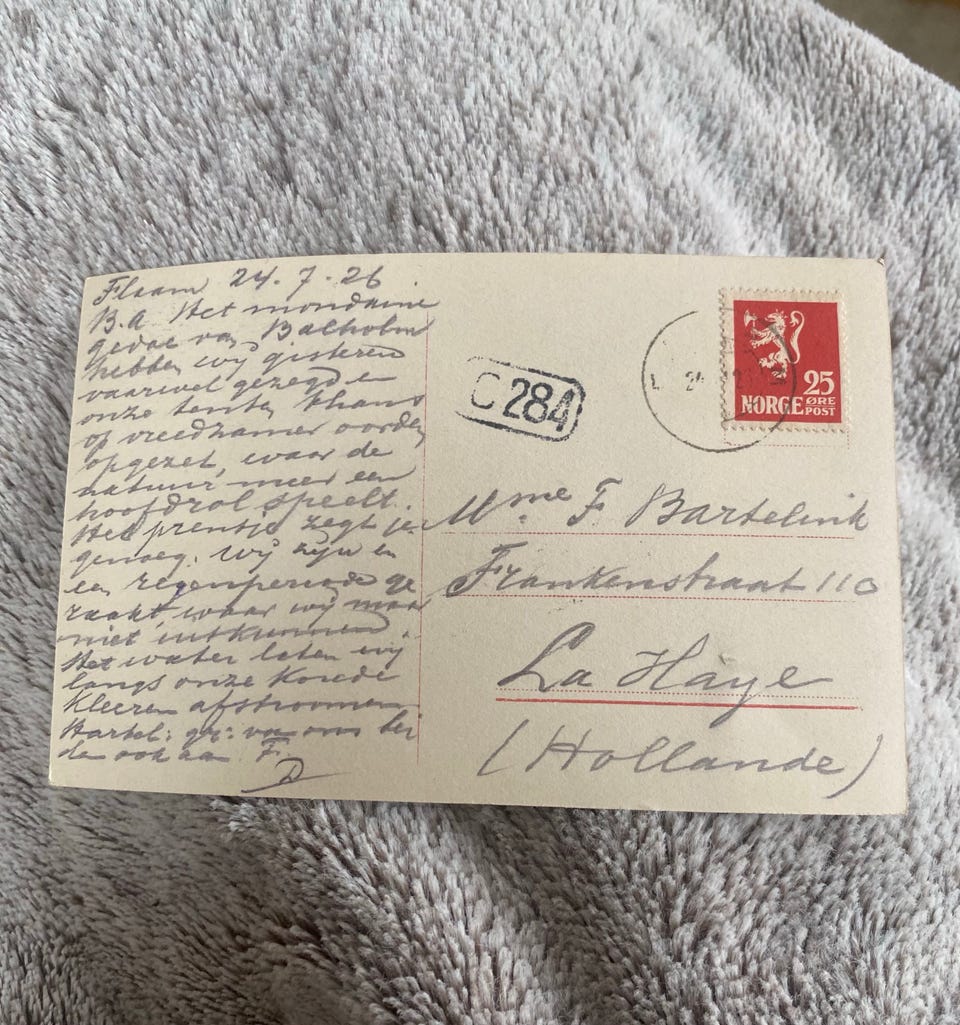 Flaam 24.7-26
B.A Het mondaine
gedoe van Balholm
hebben wij gisteren
vaarwel gezegd en
onze tenten thans
op vreedzamer oorden
opgezet, waar de
natuur meer een
hoofdrol speelt.
Het prentje zegt je
genoeg. Wij zijn in
een regenperiode ge
raakt, waar wij maar
niet uitkunnen.
Het water laten wij
langs onze
kleeren afstroomen
Hartel: gr: van ons bei
de ook aan F.
D
C 284
24
25
NORGE ØRE
POST
Mme F Bartelink
Frankenstraat 110
La Haye
(Hollande)